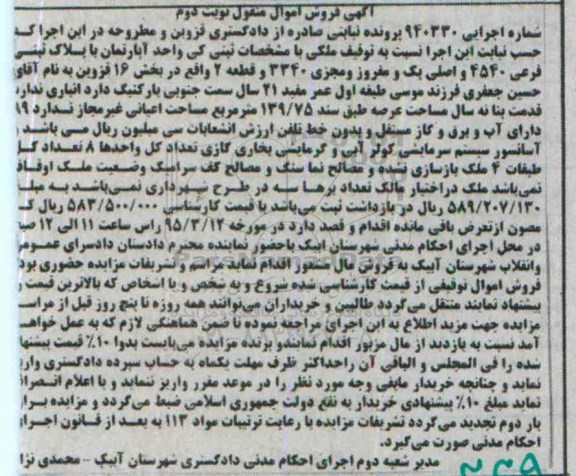 آگهی فروش اموال منقول نوبت دوم
شماره اجرایی ۹۴۰۳۳۰ پرونده نیابتی صادره از دادگستری قزوین و مطروحه در این اجرا که
حسب نیابت این اجرا نسبت به توقیف ملکی با مشخصات ثبتی کی واحد آپارتمان با پلاک ثبتی
فرعی ۴۵۴۰ و اصلی یک و مفروز ومجزی ۳۳۴۰ و قطعه ۲ واقع در بخش ۱۶ قزوین به نام آقای
حسین جعفری فرزند موسی طبقه اول عمر مفید ۲۱ سال سمت جنوبی پارکینگ دارد انباری ندارد
قدمت بنا نه سال مساحت عرصه طبق سند ۱۳۹/۷۵ مترمربع مساحت اعیانی غیرمجاز ندارد ۸۹
دارای آب و برق و گاز مستقل و بدون خط تلفن ارزش انشعابات سی میلیون ریال می باشد
آسانسور سیستم سرمایشی کولر آبی و گرمایشی بخاری گازی تعداد کل واحدها ۸ تعداد کل
طبقات ۴ ملک بازسازی نشده و مصالح نما سنگ و مصالح کف سرامیک وضعیت ملک اوقاف
نمی‌باشد ملک دراختیار مالک تعداد برها سه در طرح شهرداری نمی‌باشد به مبلغ
۵۸۹/۲۰۷/۱۳۰ ریال در بازداشت ثبت می‌باشد با قیمت کارشناسی ۵۸۳/۵۰۰/۰۰۰ ریال که
مصون ازتعرض باقی مانده اقدام و قصد دارد در مورخه ۹۵/۳/۱۲ راس ساعت ۱۱ الی ۱۲ صبح
در محل اجرای احکام مدنی شهرستان آبیک باحضور نماینده محترم دادستان دادسرای عمومی
وانقلاب شهرستان آبیک به فروش مال مشتور اقدام نماید مراسم و تشریفات مزایده حضوری بوده
فروش اموال توقیفی از قیمت کارشناسی شده شروع و به شخص و یا اشخاص که بالاترین قیمت را
پیشنهاد نمایند منتقل می‌گردد طالبین و خریداران می‌توانند همه روزه تا پنج روز قبل از مراسم
مزایده جهت مزید اطلاع به این اجرای مراجعه نموده تا ضمن هماهنگی لازم که به عمل خواهد
آمد نسبت به بازدید از مال مزبور اقدام نمایندو برنده مزایده می‌بایست بدوا ۱۰٪ قیمت پیشنهاد
شده را فی المجلس و الباقی آن راحداکثر ظرف مهلت یکماه به حساب سپرده دادگستری واریز
نماید و چنانچه خریدار مابقی وجه مورد نظر را در موعد مقرر واریز ننماید و یا اعلام انصراف
نماید مبلغ ۱۰٪ پیشنهادی خریدار به نفع دولت جمهوری اسلامی ضبط می‌گردد و مزایده برای
بار دوم تجدید می‌گردد تشریفات مزایده با رعایت ترتیبات مواد ۱۱۳ به بعد از قانون اجرای
احکام مدنی صورت می‌گیرد.
مدیر شعبه دوم اجرای احکام مدنی دادگستری شهرستان آبیک - محمدی نژاد